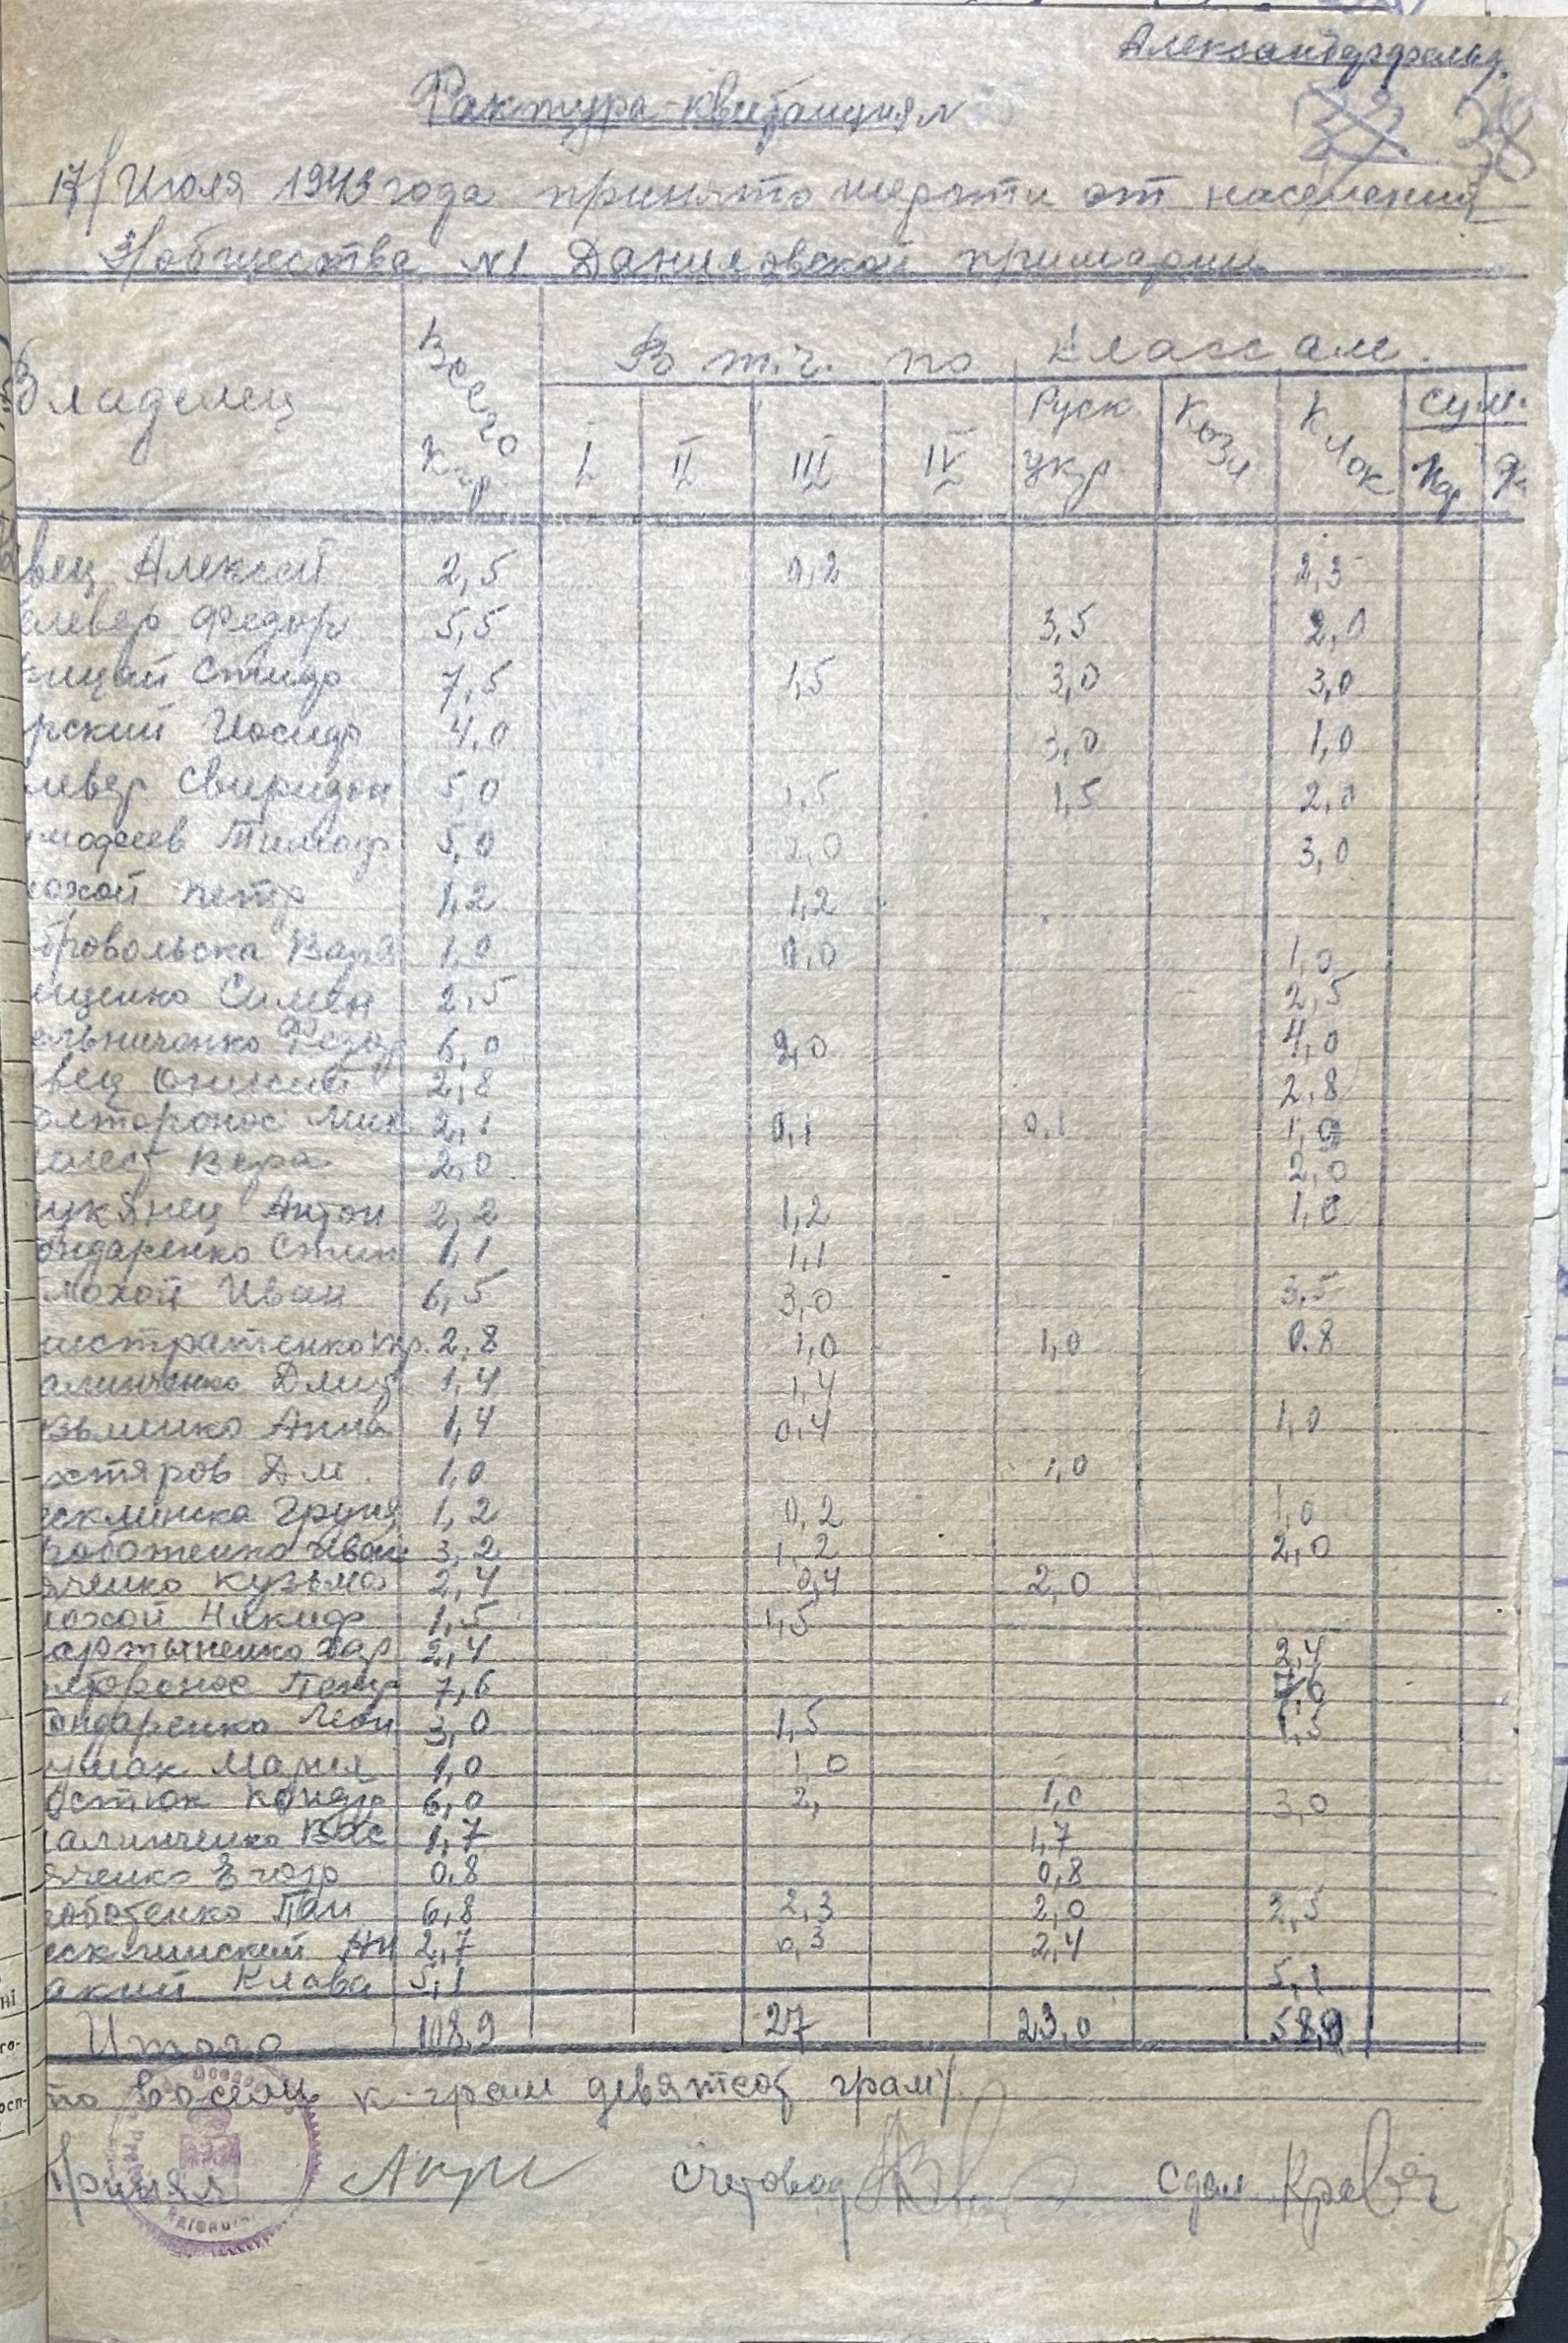 Александерфельд.
Фактура-квитанция N
32 38
17/Июля 1943 года принято шерсти от населения
3/общества N1 Даниловской примарии
Владелец Всего кгр. В т.ч. по классам. Сум.
I II III IV Руск укр Кози Клок
вец Алексей 2,5 0,2 2,3
левер Федор 5,5 3,5 2,0
ицай 7,5 1,5 3,0 3,0
рский Иосиф 4,0 3,0 1,0
левер Свиридон 5,0 1,5 1,5 2,0
мофеев Тимоф 5,0 2,0 3,0
охой Петр 1,2 1,2
бровольска Варя 1,0 0,0 1,0
ищенко Симен 2,5 2,5
ельниченко Федор 6,0 2,0 4,0
вец 2,8 2,8
олторонос Мик 2,1 0,1 0,1 1,9
елест Вера 2,0 2,0
укянец Антон 2,2 1,2 1,0
ондаренко Степ 1,1 1,1
лохой Иван 6,5 3,0 3,5
истратенко 2,8 1,0 1,0 0.8
алинченко Дмит 1,4 1,4
зьменко Анна 1,4 0,4 1,0
хтяров Дм. 1,0 1,0
есклинска Груня 1,2 0,2 1,0
Иван 3,2 1,2 2,0
яченко Кузьма 2,4 0,4 2,0
лохой Никиф 1,5 1,5
артыненко Хар 2,4 2,4
лторонос Петр 7,6 7,6
ондаренко Леон 3,0 1,5 1,5
ушак Мария 1,0 1,0
остюк Кондр 6,0 2, 1,0 3,0
алинченко Вас 1,7 1,7
яченко Егор 0,8 0,8
Пан 6,8 2,3 2,0 2,5
есклинский Ни 2,7 0,3 2,4
акий Клава 5,1 5,1
Итого 108,9 27 23,0 58,9
то восем к-грам девятсот грам/
Принял Счетовод Сдал Кравец